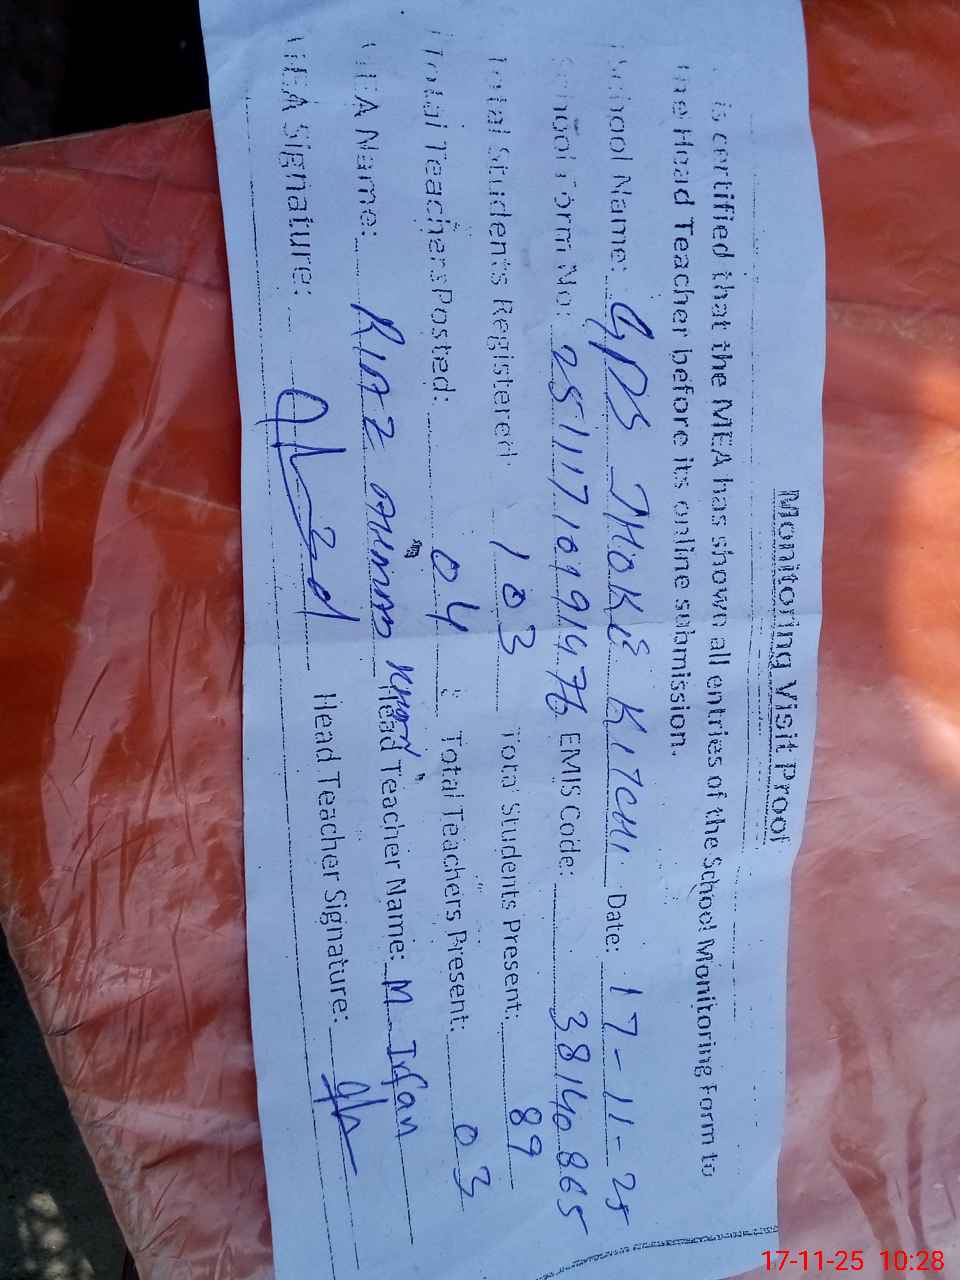 Monitoring Visit Proof
is certified that the MEA has shown all entries of the School Monitoring Form to
the Head Teacher before its online submission.
School Name: GPS THOKE KITCHI Date: 17-11-25
School Form No: 251117109191476 EMIS Code: 38140865
Total Students Registered: 103 Total Students Present: 89
Total Teachers Posted: 04 Total Teachers Present: 03
MEA Name: RIAZ AHMAD KHAN Head Teacher Name: M Irfan
MEA Signature: Head Teacher Signature:
17-11-25 10:28